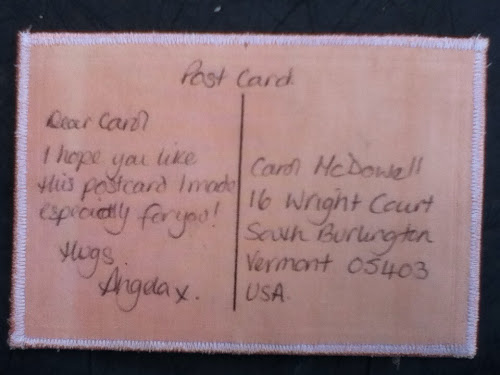 Post Card
Dear Carol
I hope you like
this postcard I made
especially for you!
Hugs.
Angela x.
Carol McDowell
16 Wright Court
South Burlington
Vermont 05403
USA.